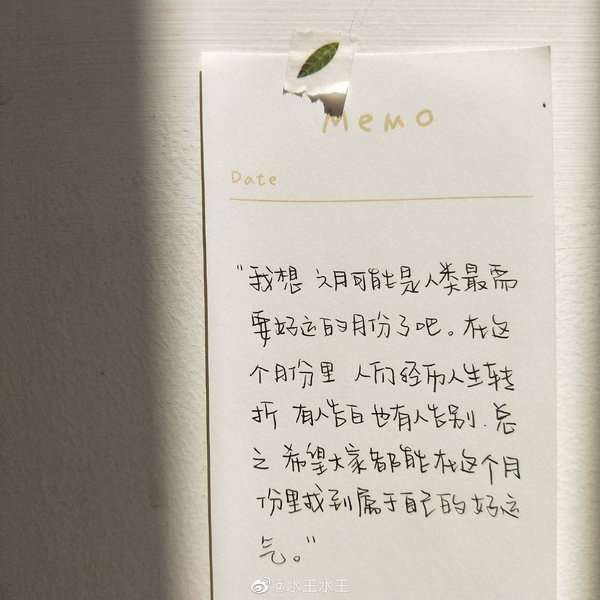 Memo
Date
“我想 六月可能是人类最需
要好运的月份了吧。在这
个月份里 人们经历人生转
折 有人告白也有人告别.总
之 希望大家都能在这个月
份里找到属于自己的好运
气。”
@水王水王